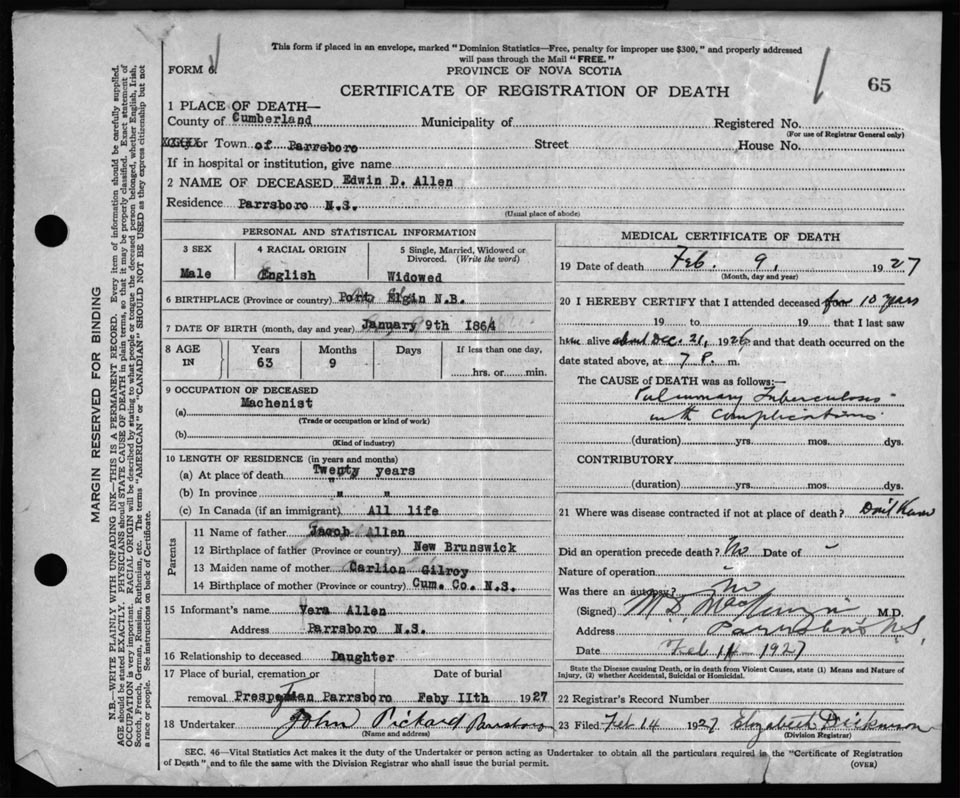 This form if placed in an envelope, marked "Dominion Statistics—Free, penalty for improper use $300," and properly addressed
will pass through the Mail "FREE."
FORM 6.
PROVINCE OF NOVA SCOTIA
CERTIFICATE OF REGISTRATION OF DEATH
65
1 PLACE OF DEATH—
County of Cumberland Municipality of Registered No.
(For use of Registrar General only)
or Town of Parrsboro Street House No.
If in hospital or institution, give name
2 NAME OF DECEASED Edwin D. Allen
Residence Parrsboro N.S.
(Usual place of abode)
PERSONAL AND STATISTICAL INFORMATION
3 SEX 4 RACIAL ORIGIN 5 Single, Married, Widowed or
Divorced. (Write the word)
Male English Widowed
6 BIRTHPLACE (Province or country) Port Elgin N.B.
7 DATE OF BIRTH (month, day and year) January 9th 1864
8 AGE IN Years Months Days If less than one day,
63 9 hrs. or min.
9 OCCUPATION OF DECEASED
Machenist
(a)
(Trade or occupation or kind of work)
(b)
(Kind of industry)
10 LENGTH OF RESIDENCE (in years and months)
(a) At place of death Twenty years
(b) In province " "
(c) In Canada (if an immigrant) All life
Parents
11 Name of father Jacob Allen
12 Birthplace of father (Province or country) New Brunswick
13 Maiden name of mother Carlion Gilroy
14 Birthplace of mother (Province or country) Cum. Co. N.S.
15 Informant's name Vera Allen
Address Parrsboro N.S.
16 Relationship to deceased Daughter
17 Place of burial, cremation or Date of burial
removal Parrsboro Feby 11th 1927
18 Undertaker John Rickard Parrsboro
(Name and address)
MEDICAL CERTIFICATE OF DEATH
19 Date of death Feb. 9, 1927
(Month, day and year)
20 I HEREBY CERTIFY that I attended deceased for 10 years
19 to 19 that I last saw
him alive about Dec. 21, 1926 and that death occurred on the
date stated above, at 7 P. m.
The CAUSE OF DEATH was as follows:—
Pulmonary Tuberculosis
with Complications
(duration) yrs. mos. dys.
CONTRIBUTORY
(duration) yrs. mos. dys.
21 Where was disease contracted if not at place of death? Don't Know
Did an operation precede death? No Date of
Nature of operation
Was there an autopsy? no
(Signed) M.D. M.D.
Address Parrsboro NS
Date Feb 14 1927
State the Disease causing Death, or in death from Violent Causes, state (1) Means and Nature of
Injury, (2) whether Accidental, Suicidal or Homicidal.
22 Registrar's Record Number
23 Filed Feb 14 1927 Elizabeth Dickinson
(Division Registrar)
SEC. 46—Vital Statistics Act makes it the duty of the Undertaker or person acting as Undertaker to obtain all the particulars required in the "Certificate of Registration
of Death" and to file the same with the Division Registrar who shall issue the burial permit. (OVER)
MARGIN RESERVED FOR BINDING
N.B.—WRITE PLAINLY WITH UNFADING INK—THIS IS A PERMANENT RECORD. Every item of information should be carefully supplied.
AGE should be stated EXACTLY. PHYSICIANS should STATE CAUSE OF DEATH in plain terms, so that it may be properly classified. Exact statement of
OCCUPATION is very important. RACIAL ORIGIN will be described by stating to what people or tongue the deceased person belonged, whether English, Irish,
Scotch, French, German, Russian, Ruthenian, etc. The terms "AMERICAN" or "CANADIAN" SHOULD NOT BE USED as they express citizenship but not
a race or people. See instructions on back of Certificate.